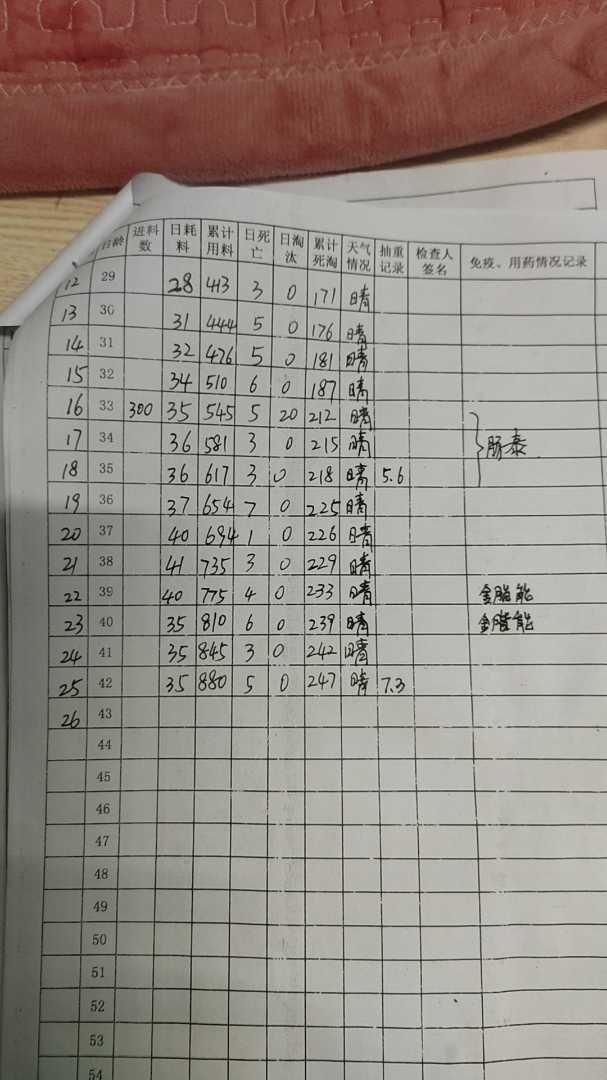 日龄 进料数 日耗料 累计用料 日死亡 日淘汰 累计死淘 天气情况 抽重记录 检查人签名 免疫、用药情况记录
12 29 28 413 3 0 171 晴
13 30 31 444 5 0 176 晴
14 31 32 476 5 0 181 晴
15 32 34 510 6 0 187 晴
16 33 300 35 545 5 20 212 晴
17 34 36 581 3 0 215 晴 肠泰
18 35 36 617 3 0 218 晴 5.6
19 36 37 654 7 0 225 晴
20 37 40 694 1 0 226 晴
21 38 41 735 3 0 229 晴
22 39 40 775 4 0 233 晴 金脂能
23 40 35 810 6 0 239 晴 金脂能
24 41 35 845 3 0 242 晴
25 42 35 880 5 0 247 晴 7.3
26 43
44
45
46
47
48
49
50
51
52
53
54